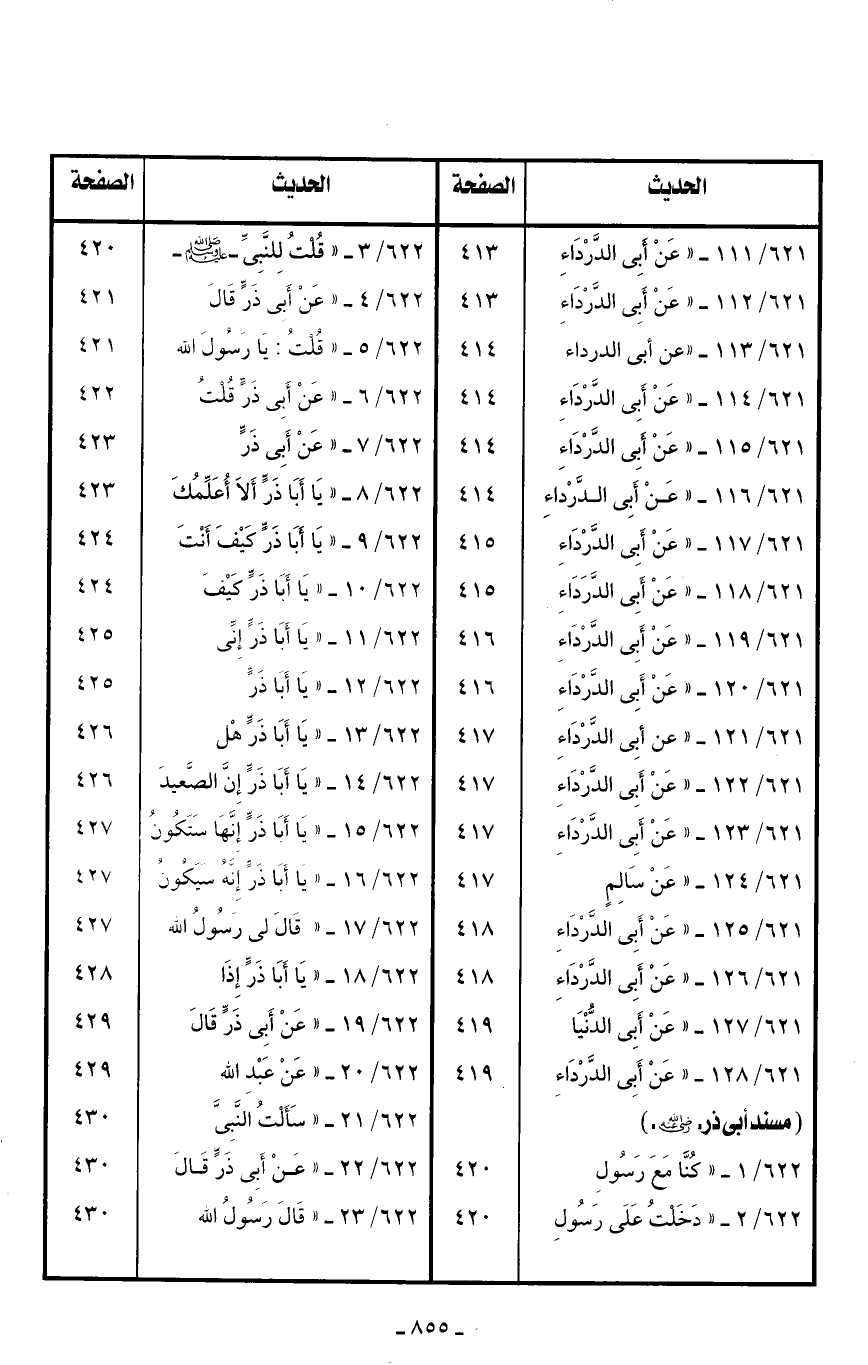 الحديث الصفحة
٦٢١/ ١١١ ـ « عَنْ أَبِى الدَّرْدَاءِ ٤١٣
٦٢١/ ١١٢ ـ « عَنْ أَبِى الدَّرْدَاءِ ٤١٣
٦٢١/ ١١٣ ـ «عن أبى الدرداء ٤١٤
٦٢١/ ١١٤ ـ « عَنْ أَبِى الدَّرْدَاءِ ٤١٤
٦٢١/ ١١٥ ـ « عَنْ أَبِى الدَّرْدَاءِ ٤١٤
٦٢١/ ١١٦ ـ « عَـنْ أَبِى الـدَّرْداءِ ٤١٤
٦٢١/ ١١٧ ـ « عَنْ أَبِى الدَّرْدَاءِ ٤١٥
٦٢١/ ١١٨ ـ « عَنْ أَبِى الدَّرَدَاءِ ٤١٥
٦٢١/ ١١٩ ـ « عَنْ أَبِى الدَّرْدَاءِ ٤١٦
٦٢١/ ١٢٠ ـ « عَنْ أَبِى الدَّرْدَاءِ ٤١٦
٦٢١/ ١٢١ ـ « عن أبى الدَّرْدَاءِ ٤١٧
٦٢١/ ١٢٢ ـ « عَنْ أَبِى الدَّرْدَاءِ ٤١٧
٦٢١/ ١٢٣ ـ « عَنْ أَبِى الدَّرْدَاءِ ٤١٧
٦٢١/ ١٢٤ ـ « عَنْ سَالِمٍ ٤١٧
٦٢١/ ١٢٥ ـ « عَنْ أَبِى الدَّرْدَاءِ ٤١٨
٦٢١/ ١٢٦ ـ « عَنْ أَبِى الدَّرْدَاءِ ٤١٨
٦٢١/ ١٢٧ ـ « عَنْ أَبِى الدُّنْيَا ٤١٩
٦٢١/ ١٢٨ ـ « عَنْ أَبِى الدَّرْدَاءِ ٤١٩
(مسند أبى ذر. رضي الله عنه .)
٦٢٢/ ١ ـ « كُنَّا مَعَ رَسُولِ ٤٢٠
٦٢٢/ ٢ ـ « دَخَلْتُ عَلَى رَسُولِ ٤٢٠
الحديث الصفحة
٦٢٢/ ٣ ـ « قُلْتُ لِلنَّبِىِّ ـ ﷺ ـ ٤٢٠
٦٢٢/ ٤ ـ « عَنْ أَبِى ذَرٍّ قَالَ ٤٢١
٦٢٢/ ٥ ـ « قُلْتُ : يَا رَسُولَ الله ٤٢١
٦٢٢/ ٦ ـ « عَنْ أَبِى ذَرٍّ قُلْتُ ٤٢٢
٦٢٢/ ٧ ـ « عَنْ أَبِى ذَرٍّ ٤٢٣
٦٢٢/ ٨ ـ « يَا أَبَا ذَرٍّ أَلاَ أُعَلِّمُكَ ٤٢٣
٦٢٢/ ٩ ـ « يَا أَبَا ذَرٍّ كَيْفَ أَنْتَ ٤٢٤
٦٢٢/ ١٠ ـ « يَا أَبَا ذَرٍّ كَيْفَ ٤٢٤
٦٢٢/ ١١ ـ « يَا أَبَا ذَرٍّ إِنِّى ٤٢٥
٦٢٢/ ١٢ ـ « يَا أَبَا ذَرٍّ ٤٢٥
٦٢٢/ ١٣ ـ « يَا أَبَا ذَرٍّ هْل ٤٢٦
٦٢٢/ ١٤ ـ « يَا أَبَا ذَرٍّ إِنَّ الصَّعِيدَ ٤٢٦
٦٢٢/ ١٥ ـ « يَا أَبَا ذَرٍّ إِنَّهَا سَتَكُونُ ٤٢٧
٦٢٢/ ١٦ ـ « يَا أَبَا ذَرٍّ إِنَّهُ سَيَكُونُ ٤٢٧
٦٢٢/ ١٧ ـ « قَالَ لى رَسُولُ الله ٤٢٧
٦٢٢/ ١٨ ـ « يَا أَبَا ذَرٍّ إِذَا ٤٢٨
٦٢٢/ ١٩ ـ « عَنْ أَبِى ذَرٍّ قَالَ ٤٢٩
٦٢٢/ ٢٠ ـ « عَنْ عَبْدِ الله ٤٢٩
٦٢٢/ ٢١ ـ « سَأَلْتُ النَّبِىَّ ٤٣٠
٦٢٢/ ٢٢ ـ « عَـنْ أَبِى ذَرٍّ قَـالَ ٤٣٠
٦٢٢/ ٢٣ ـ « قَالَ رَسُولُ الله ٤٣٠
ـ ٨٥٥ ـ